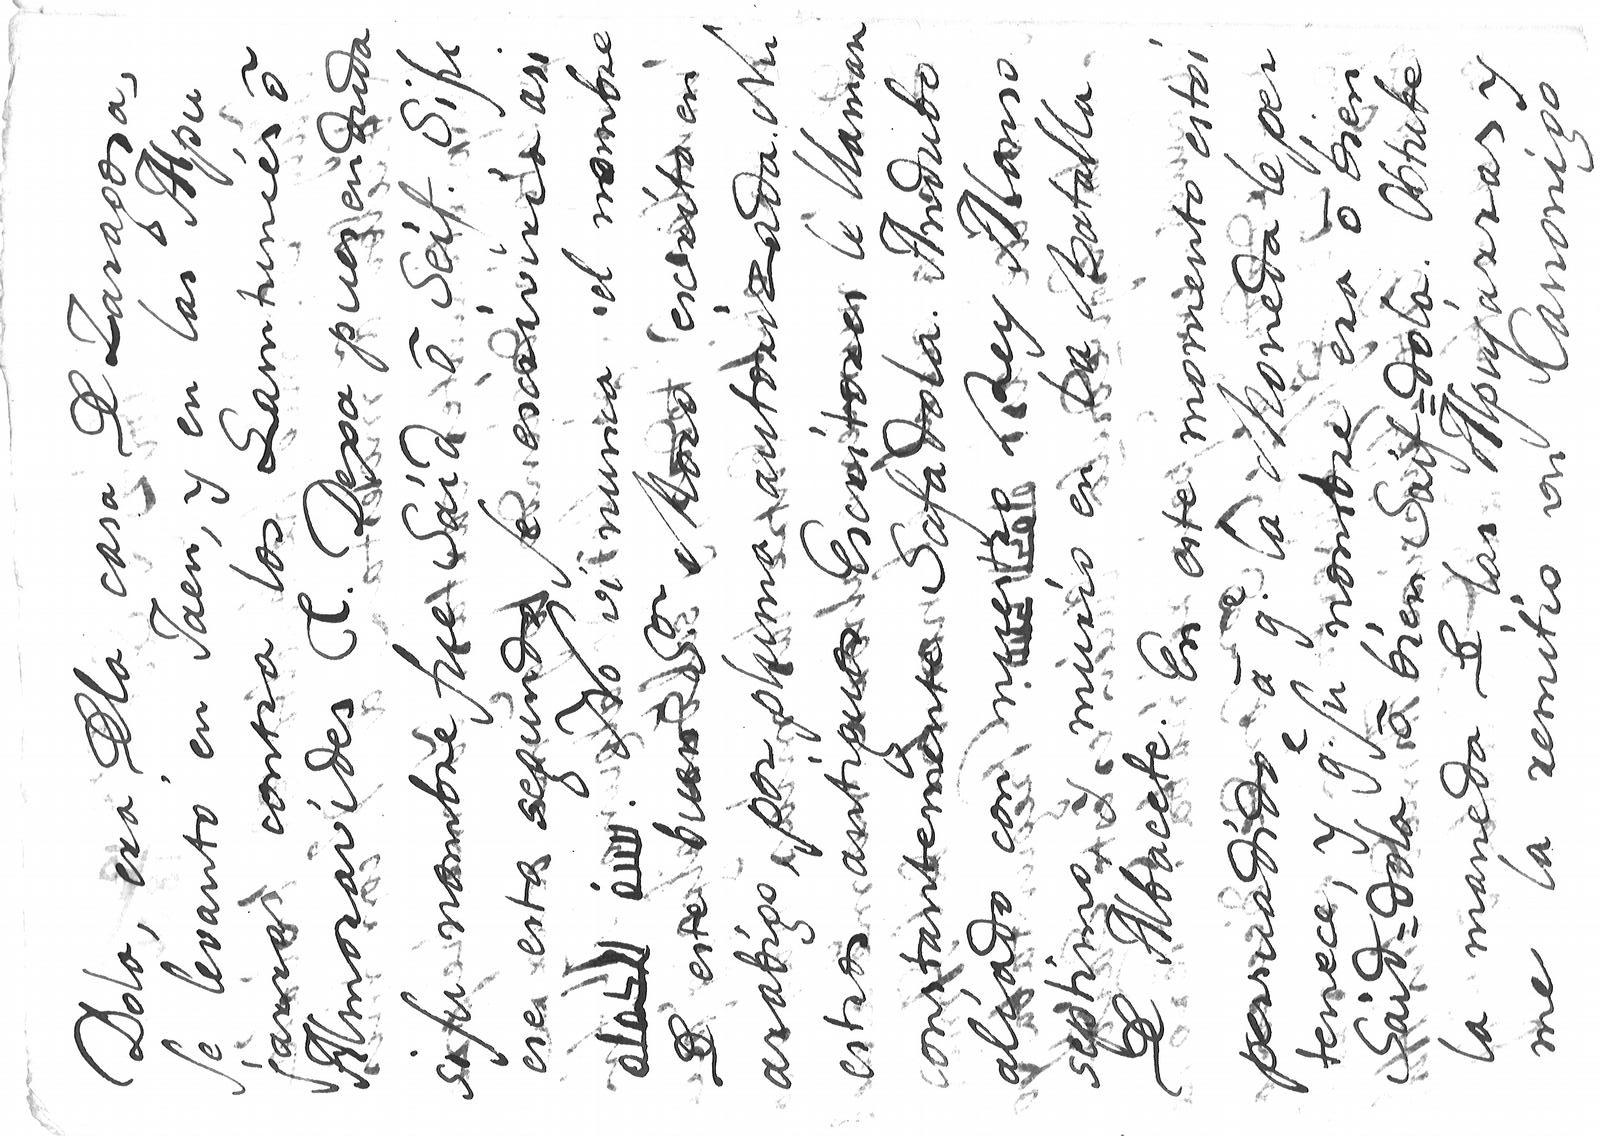 Dola, era Dla casa D Zaragoza,
se levantó en Jaen, y en las Alpu
jarras contra los Lamtunies ō
Almoravides &. Dexa pues en duda
si su nombre fue Said ō Seif. Si fu
ese esta segunda se escriviria asi
Yo vi nunca el nombre
D este buen Dor Moro escrito en
arabigo, por pluma autorizada. Nu
estros antiguos Escritores le llaman
constantemente Safadola. Anduvo
aliado con nuestro Rey Alonso
septimo, y murio en la Batalla
D Albacete. En este momento estoi
persuadido ā q.e la Moneda le per
tenece, y q.e su nombre era ō bien
Said=Dola ō bien Saif=dola. Obtube
la moneda D las Alpujarras y
me la remitio un Canonigo